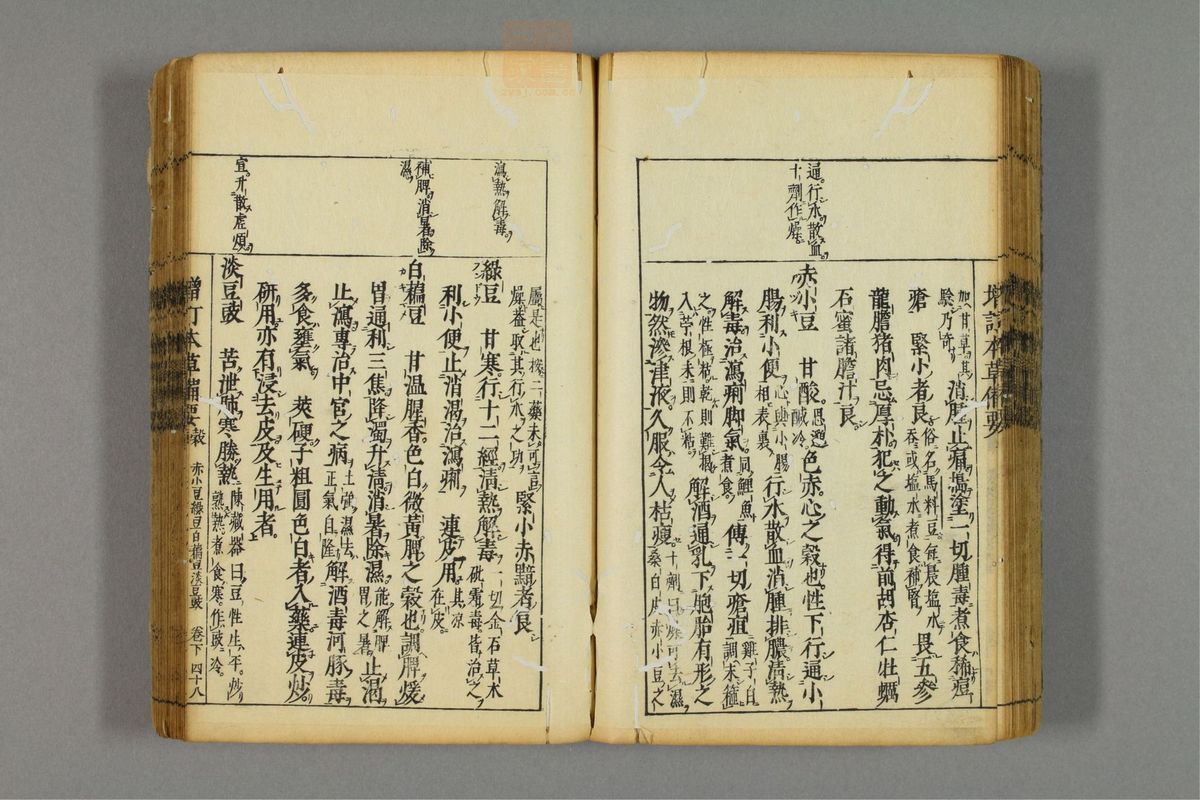 增訂本草備要
加甘草其
驗乃奇
消腫止痛搗塗一切腫毒煮食稀痘
瘡
緊小者良
俗名馬料豆每晨塩水
吞或塩水煮食補腎
畏五參
龍膽猪肉忌厚朴犯之動氣得前胡杏仁牡蠣
石蜜諸膽汁良
通行水散血
十劑作燥
赤小豆
甘酸
思邈
鹹冷
色赤心之穀也性下行通小
腸利小便
心與小腸
相表裏
行水散血消腫排膿清熱
解毒治瀉痢脚氣
同鯉魚
煮食
傅一切瘡疽
雞子白
調末箍
之性極粘乾則難揭
入苧根末則不粘
解酒通乳下胞胎有形之
物然滲津液久服令人枯瘦
十劑曰燥可去濕
桑白皮赤小豆之
屬是也按二藥未可言
燥葢取其行水之功
緊小赤黯者良
瀉熱解毒
綠豆
甘寒行十二經清熱解毒
一切金石草木
砒霜毒皆治之
利小便止消渴治瀉痢
連皮用
其凉
在皮
補脾消暑除
濕
白藊豆
甘温腥香色白微黃脾之穀也調脾煖
胃通利三焦降濁升清消暑除濕
能解脾
胃之暑
止渴
止瀉專治中宮之病
土强濕去
正氣自隆
解酒毒河豚毒
多食壅氣
莢硬子粗圓色白者入藥連皮炒
研用亦有浸去皮及生用者
宣升散虛煩
淡豆豉
苦泄肺寒勝熱
陳藏器曰豆性生平炒
熟熱煮食寒作豉冷
增訂本草備要
穀
赤小豆綠豆白藊豆淡豆豉
卷下
四十八